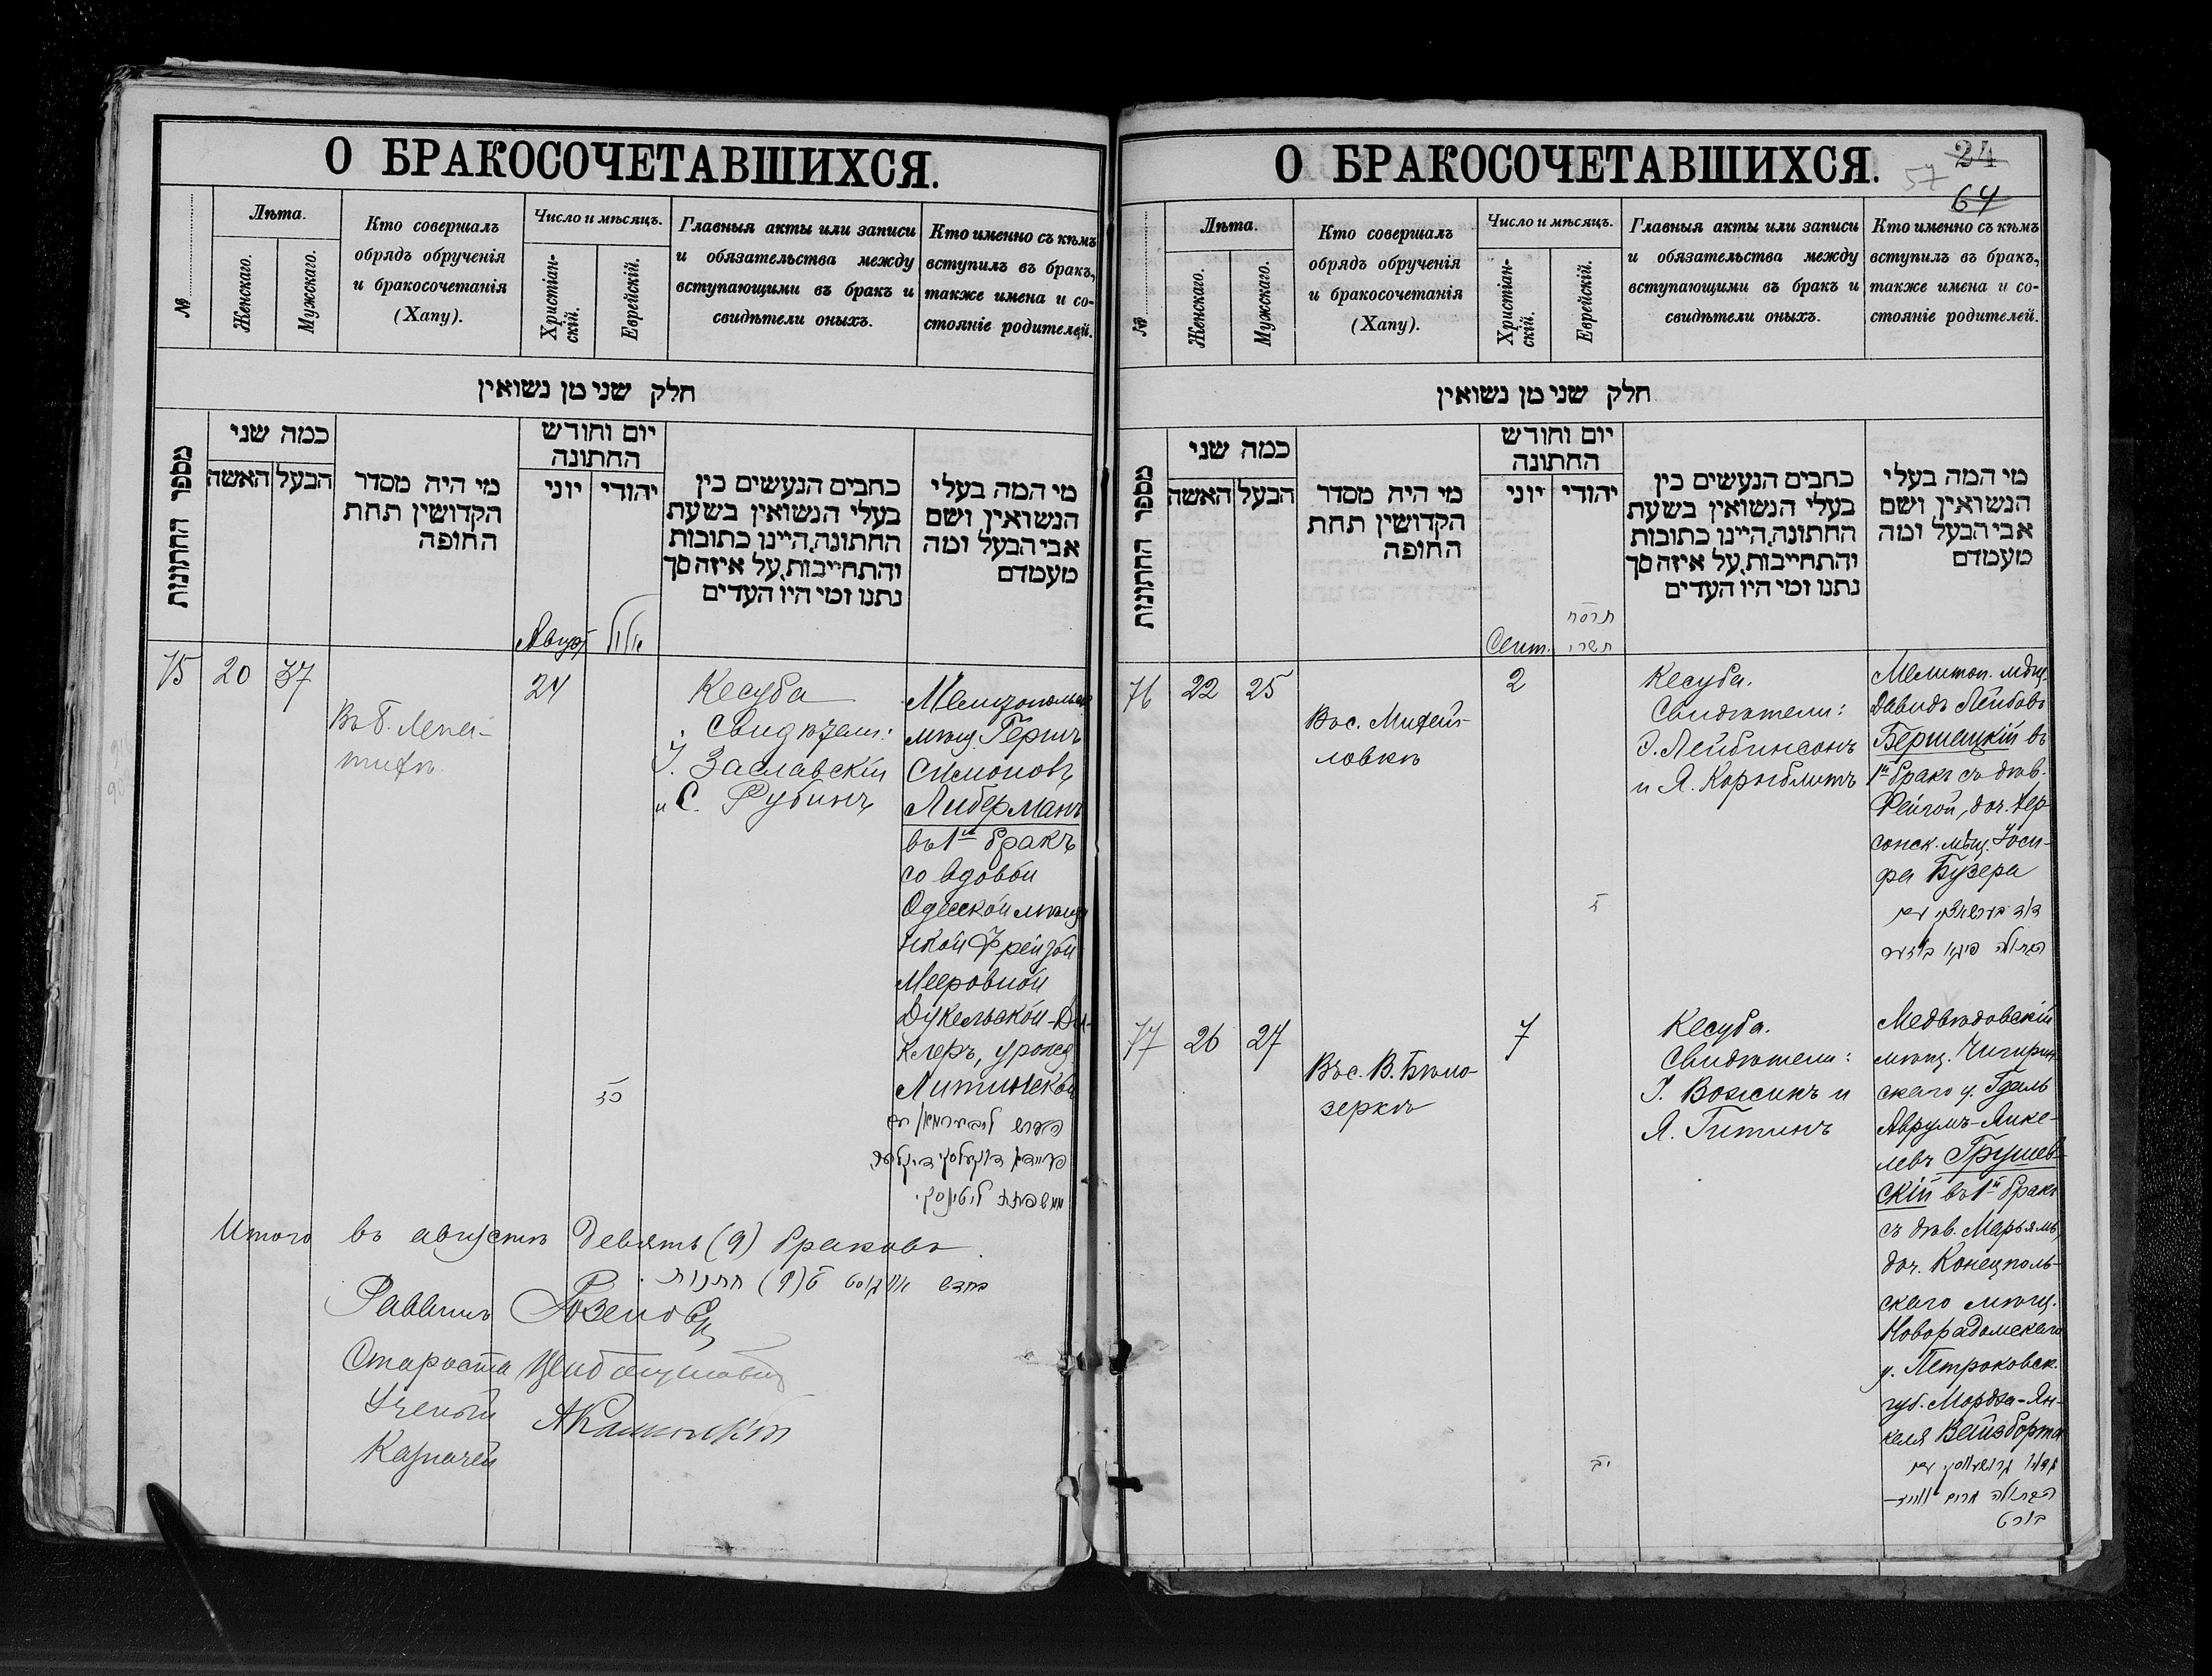 О БРАКОСОЧЕТАВШИХСЯ.
№
Лѣта.
Женскаго.
Мужскаго.
Кто совершалъ
обрядъ обрученія
и бракосочетанія
(Хапу).
Число и мѣсяцъ.
Христіан-
скій.
Еврейскій.
Главныя акты или записи
и обязательства между
вступающими въ бракъ и
свидѣтели оныхъ.
Кто именно съ кѣмъ
вступилъ въ бракъ,
также имена и со-
стояніе родителей.
חלק שני מן נשואין
מספר החתונות
כמה שני
האשה
הבעל
מי היה מסדר
הקדושין תחת
החופה
יום וחודש
החתונה
יוני
יהודי
כתבים הנעשים בין
בעלי הנשואין בשעת
החתונה, היינו כתובות
והתחייבות, על איזה סך
נתנו ומי היו העדים
מי המה בעלי
הנשואין, ושם
אבי הבעל ומה
מעמדם
אלול
75
20
37
24
כז
Кесуба
Свидѣтели:
І. Заславскій
и С. Рубинъ
мѣщ. Гершъ
Симоновъ
Либерманъ
въ 1й бракъ
со вдовой
Одесской мѣщан
ской Фрейдой
Мееровной
Дукельской-Ду-
клеръ, урожд.
Литинской
הערש ליבערמאן עם
ממשפחת ליטינסקי
Итого въ августѣ девять (9) браковъ
בחדש אויגוסט ט (9) חתנות
Раввинъ
Староста
Ученый
Казначей
О БРАКОСОЧЕТАВШИХСЯ.
24
57
64
№
Лѣта.
Женскаго.
Мужскаго.
Кто совершалъ
обрядъ обрученія
и бракосочетанія
(Хапу).
Число и мѣсяцъ.
Христіан-
скій.
Еврейскій.
Главныя акты или записи
и обязательства между
вступающими въ бракъ и
свидѣтели оныхъ.
Кто именно съ кѣмъ
вступилъ въ бракъ,
также имена и со-
стояніе родителей.
חלק שני מן נשואין
מספר החתונות
כמה שני
האשה
הבעל
מי היה מסדר
הקדושין תחת
החופה
יום וחודש
החתונה
יוני
יהודי
כתבים הנעשים בין
בעלי הנשואין בשעת
החתונה, היינו כתובות
והתחייבות, על איזה סך
נתנו ומי היו העדים
מי המה בעלי
הנשואין, ושם
אבי הבעל ומה
מעמדם
Сент.
תרסח
תשרי
76
22
25
Въ с. Михай-
ловкѣ
2
ז
Кесуба.
Свидѣтели:
Э. Лейбинсонъ
и Я. Корнблитъ
Мелитоп. мѣщ.
Давидъ Лейбовъ
Бершацкій въ
1й бракъ съ дѣв.
Фейгой, доч. Хер-
сонск. мѣщ. Іоси-
фа Бузера
77
26
27
Въ с. В. Бѣло-
зеркѣ
7
יב
Кесуба.
Свидѣтели:
І. Вожикъ и
Я. Гитинъ
Медвѣдовскій
мѣщ. Чигирин-
скаго у. Гдаль
Аврумъ-Янке-
левъ Грушев-
скій въ 1й бракъ
съ дѣв. Марьямъ,
доч. Конецполь-
скаго мѣщ.
Новорадомскаго
у. Петроковск.
губ. Мордха-Ян-
келя Вейсборта
הבתולה מרים ווייז-
בורט